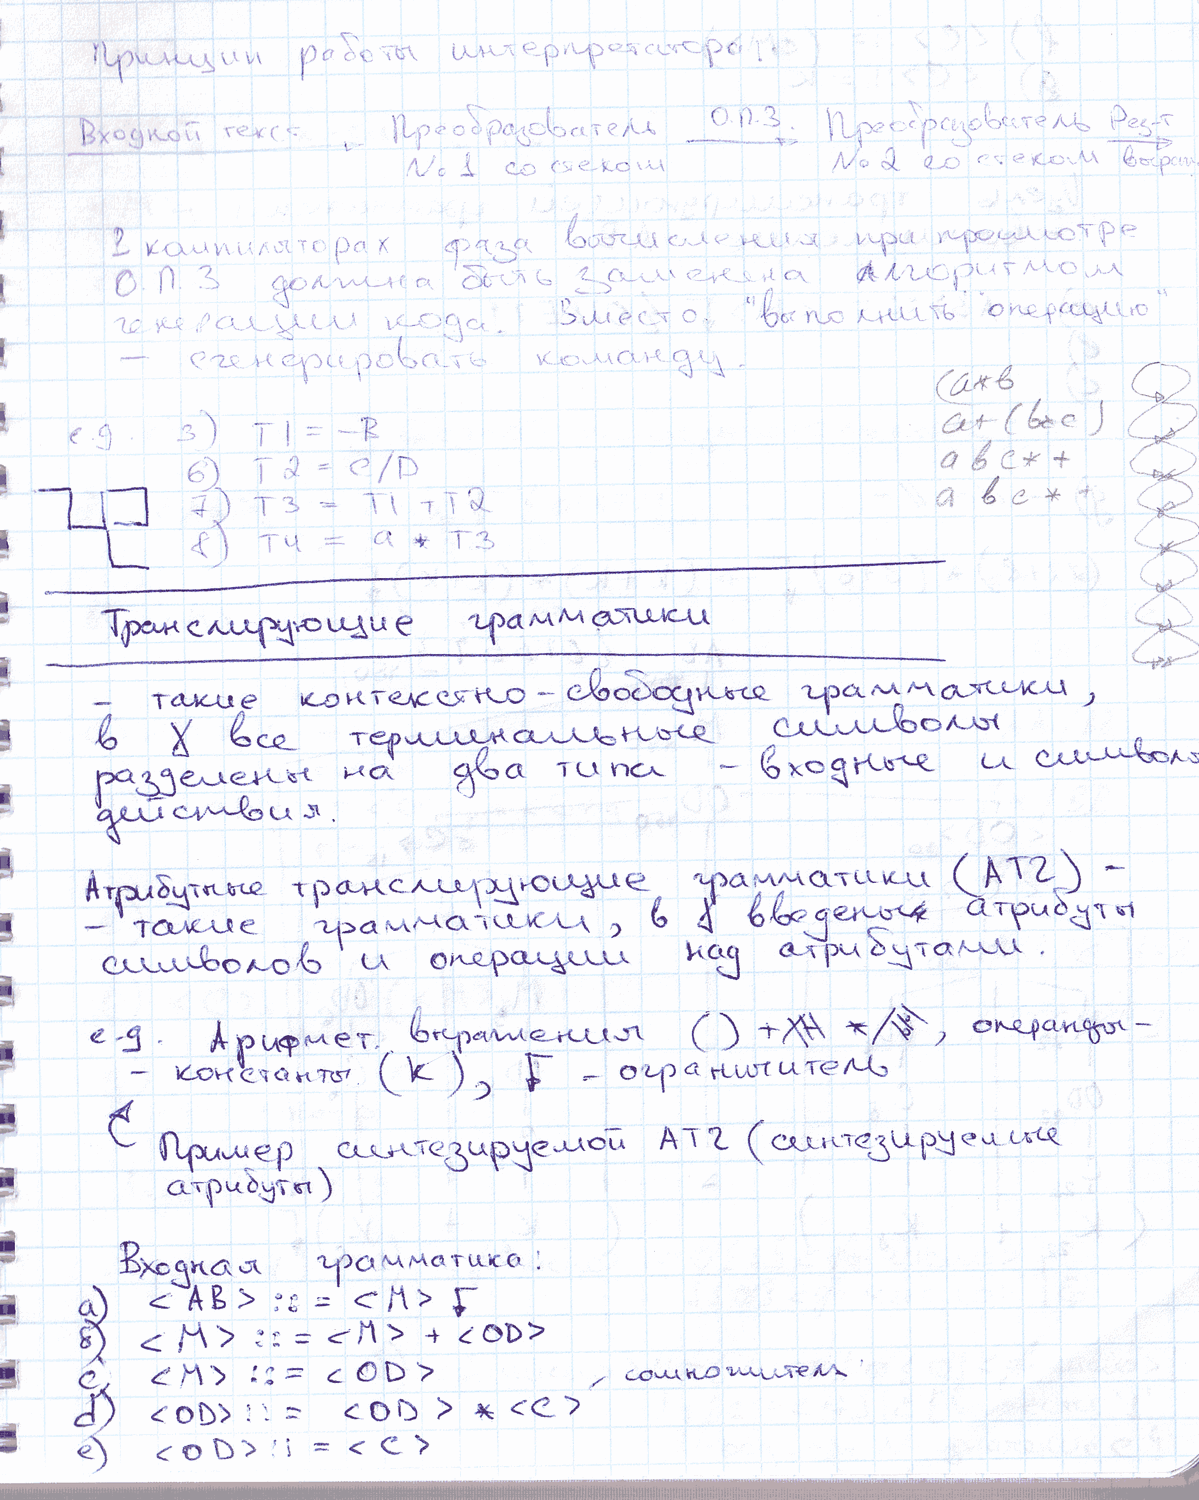 Принцип работы интерпретатора:
Входной текст Преобразователь О.П.З. Преобразователь Рез-т
№1 со стеком №2 со стеком выраж
В компиляторах фаза вычисления при просмотре
О.П.З должна быть заменена алгоритмом
генерации кода. Вместо "выполнить операцию"
– сгенерировать команду.
(a*b
a+(b*c)
abc*+
abc*+
e.g. 5) T1 = -B
6) T2 = C/D
7) T3 = T1 + T2
8) T4 = a * T3
Транслирующие грамматики
– такие контекстно-свободные грамматики,
в все терминальные символы
разделены на два типа – входные и символы
действия.
Атрибутные транслирующие грамматики (АТГ) –
– такие грамматики, в введены атрибуты
символов и операции над атрибутами.
e.g. Арифмет. выражения () + *, операнды –
– константы (K), Г – ограничитель
Пример синтезируемой АТГ (синтезируемые
атрибуты)
Входная грамматика:
a) <AB> ::= <M> Г
b) <M> ::= <M> + <OD>
c) <M> ::= <OD>
сомножитель
d) <OD> ::= <OD> * <C>
e) <OD> ::= <C>